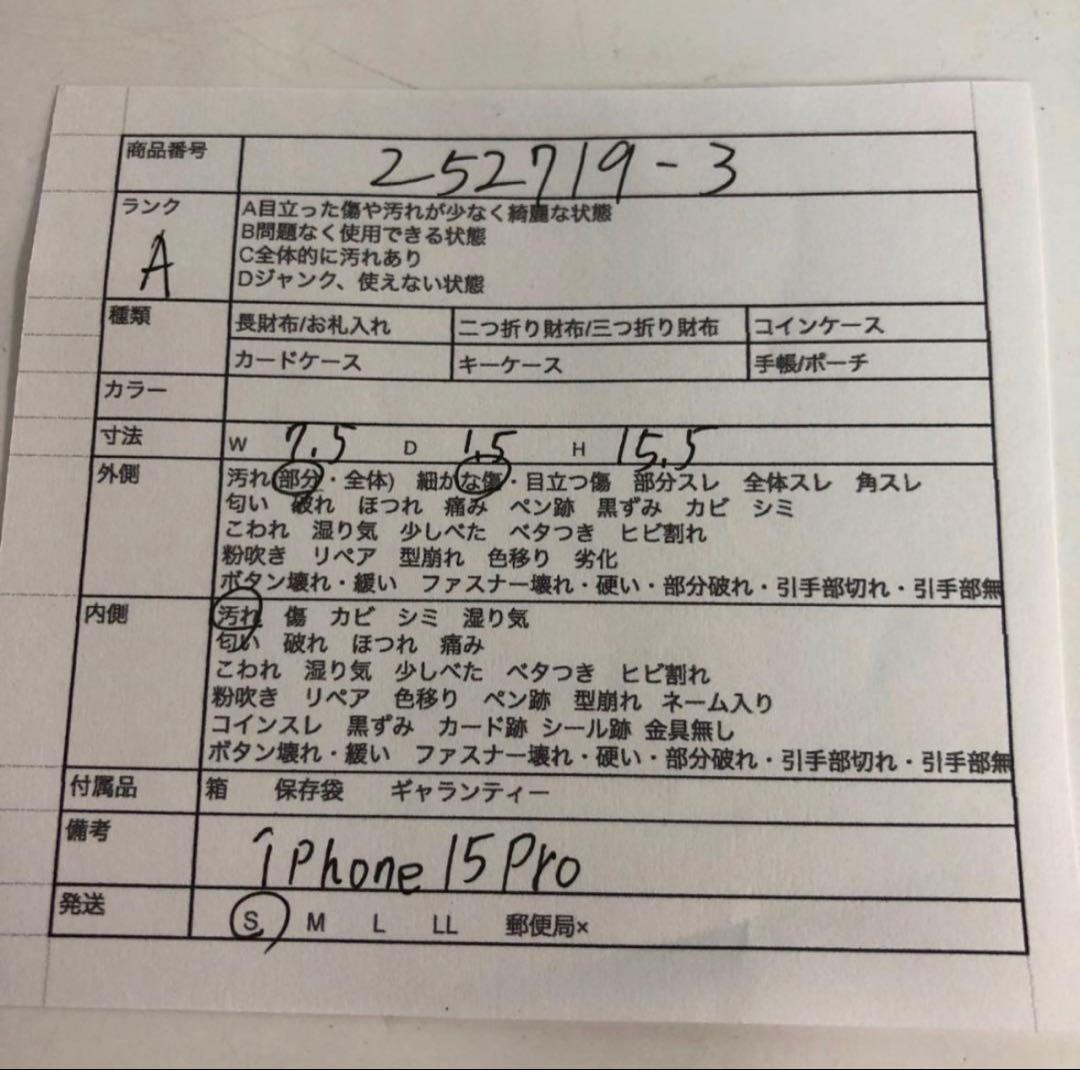 商品番号 252719-3
ランク A目立った傷や汚れが少なく綺麗な状態
B問題なく使用できる状態
A C全体的に汚れあり
Dジャンク、使えない状態
種類 長財布/お札入れ 二つ折り財布/三つ折り財布 コインケース
カードケース キーケース 手帳/ポーチ
カラー
寸法 W 7.5 D 1.5 H 15.5
外側 汚れ(部分・全体) 細かな傷・目立つ傷 部分スレ 全体スレ 角スレ
匂い 破れ ほつれ 痛み ペン跡 黒ずみ カビ シミ
こわれ 湿り気 少しべた ベタつき ヒビ割れ
粉吹き リペア 型崩れ 色移り 劣化
ボタン壊れ・緩い ファスナー壊れ・硬い・部分破れ・引手部切れ・引手部無
内側 汚れ 傷 カビ シミ 湿り気
匂い 破れ ほつれ 痛み
こわれ 湿り気 少しべた ベタつき ヒビ割れ
粉吹き リペア 色移り ペン跡 型崩れ ネーム入り
コインスレ 黒ずみ カード跡 シール跡 金具無し
ボタン壊れ・緩い ファスナー壊れ・硬い・部分破れ・引手部切れ・引手部無
付属品 箱 保存袋 ギャランティー
備考 iPhone 15 Pro
発送 S M L LL 郵便局×